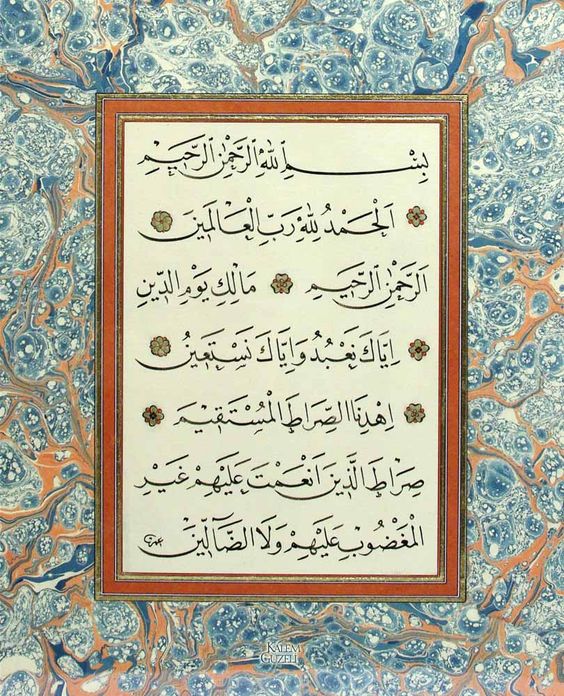 بِسْمِ اللّٰهِ الرَّحْمٰنِ الرَّحِيمِ
اَلْحَمْدُ لِلّٰهِ رَبِّ الْعَالَمِينَ
اَلرَّحْمٰنِ الرَّحِيمِ مَالِكِ يَوْمِ الدِّينِ
اِيَّاكَ نَعْبُدُ وَاِيَّاكَ نَسْتَعِينُ
اِهْدِنَا الصِّرَاطَ الْمُسْتَقِيمَ
صِرَاطَ الَّذِينَ اَنْعَمْتَ عَلَيْهِمْ غَيْرِ
الْمَغْضُوبِ عَلَيْهِمْ وَلَا الضَّٓالِّينَ
KALEM
GÜZELİ